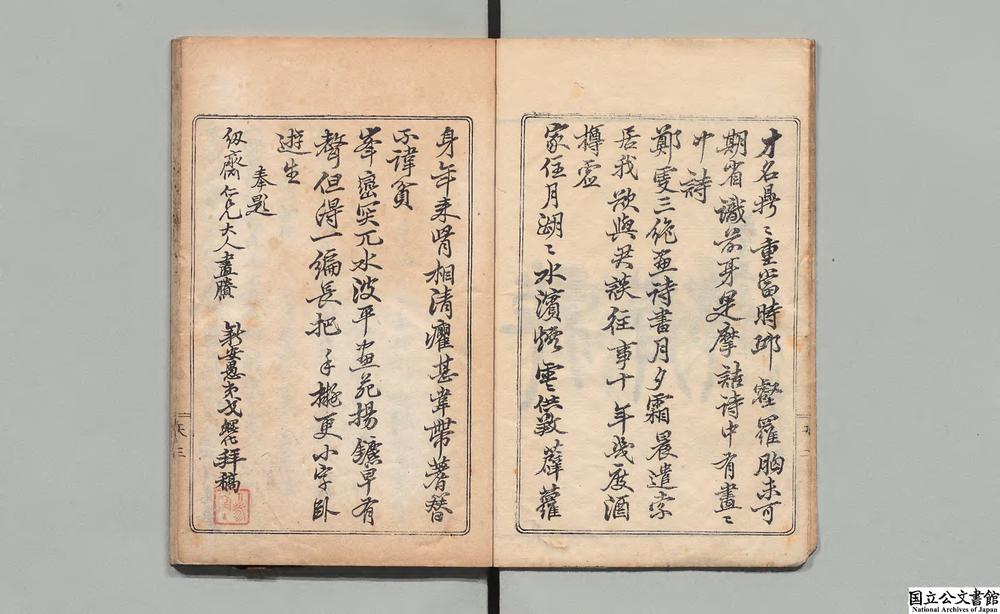 才名鼎〻重當時邱壑羅胸未可
期省識前身是摩詰诗中有畫〻
中詩
鄭虔三絶画诗書月夕霜晨遣索
居我欲與君談往事十年幾度酒
樽虛
家住月湖〻水濱煙雲供養薜蘿
身年来骨相清癯甚韋帶蓍簪
不諱貧
峯巒突兀水波平画苑揚鑣早有
聲但得一編長把手摋更小字臥
遊生
奉題
仭齋仁兄大人畫牘
新安愚弟戈鯤化拜稿
天 三
国立公文書館
National Archives of Japan